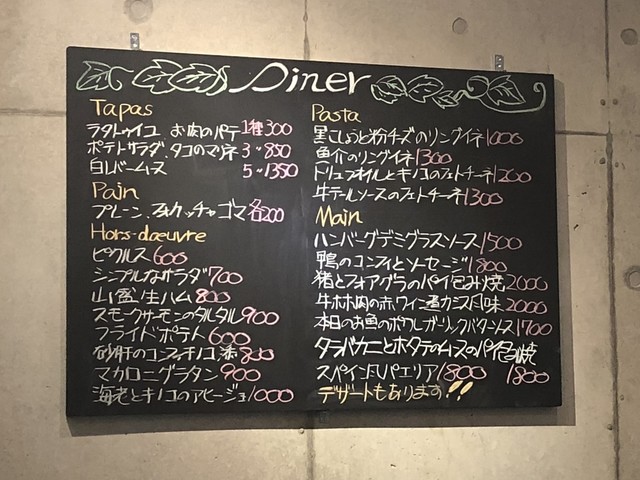 Diner
Tapas
ラタトゥイユ お肉のパテ 1種300
ポテトサラダ、タコのマリネ 3〃850
白レバームース 5〃1350
Pain
プレーン、フォカッチャ、ゴマ 各200
Hors-dœuvre
ピクルス600
シンプルなサラダ700
山盛生ハム800
スモークサーモンのタルタル900
フライドポテト600
砂肝のコンフィチノコ添800
マカロニグラタン900
海老とキノコのアヒージョ1000
Pasta
黒こしょうと粉チーズのリングイネ1000
魚介のリングイネ1300
トリュフオイルとキノコのフェトチーネ1200
牛テールソースのフェトチーネ1300
Main
ハンバーグデミグラスソース1500
鴨のコンフィとソーセージ1800
猪とフォアグラのパイ包み焼2000
牛ホホ肉の赤ワイン煮カシス風味2000
本日のお魚のポワレガーリックバターソース1700
タラバガニとホタテのムースのパイ包み焼
スペイン風パエリア1800 1800
デザートもあります!!